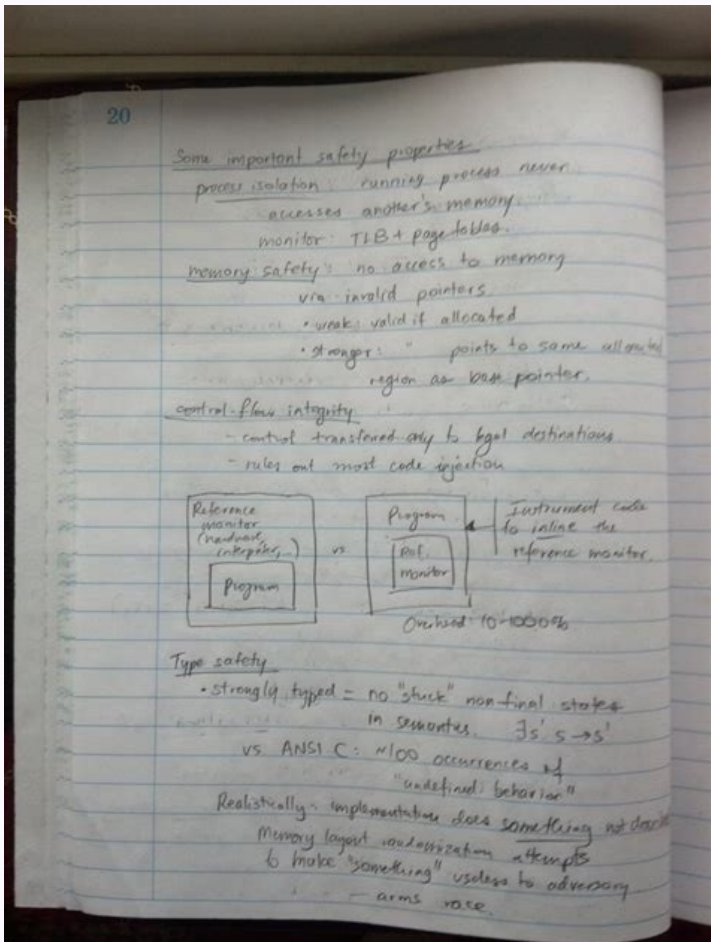 20
Some important safety properties
process isolation: running process never
accesses another's memory.
monitor: TLB + page tables.
memory safety: no access to memory
via invalid pointers.
• weak: valid if allocated
• stronger: " points to same allocated
region as base pointer.
control-flow integrity
- control transferred only to legal destinations.
- rules out most code injection
Reference
monitor
(hardware,
interpreter, ...)
Program
vs
Program
Ref.
monitor
Instrument code
to inline the
reference monitor.
Overhead: 10-100%
Type safety
• strongly typed = no "stuck" non final states
in semantics. ∃s' s → s'
vs ANSI C: ~100 occurrences of
"undefined behavior"
Realistically - implementation does something not
Memory layout randomization attempts
to make "something" useless to adversary
- arms race.